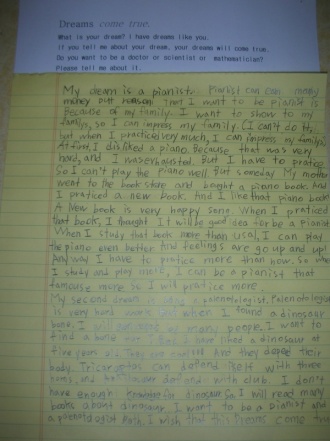 Dreams come true.
What is your dream? I have dreams like you.
If you tell me about your dream, your dreams will come true.
Do you want to be a doctor or scientist or mathematician?
Please tell me about it.
My dream is a pianist. Pianist can earn many
money but reason that I want to be pianist is
Because of my family. I want to show to my
family, so I can impress my family. I can't do it,
but when I practice very much, I can impress my family.
At first, I disliked a piano. Because that was very
hard, and I was exhausted. But I have to pratice
So I can't play the piano well But someday My mother
went to the book store and bought a piano book. And
I praticed a new book. And I like that piano book
A new book is very happy song. When I praticed
that book, I thought It will be good idea to be a pianist
When I study that book more than usal, I can play
the piano even better And feelings are go up and up!
Anyway I have to pratice more than now. So when
I study and play more, I can be a pianist that
famouse more So I will pratice more.
My second dream is a
is very hard work But when I found a dinosaur
bone, I will many people. I want to
find a bone I have liked a dinosaur at
five years old. They And they doped their
body. Triceratops can defend itself with three
and defend with club. I don't
have enough knowledge for dinosaur So I will read many
books about dinosaur I want to be a pianist and
a both I wish that this dreams come true